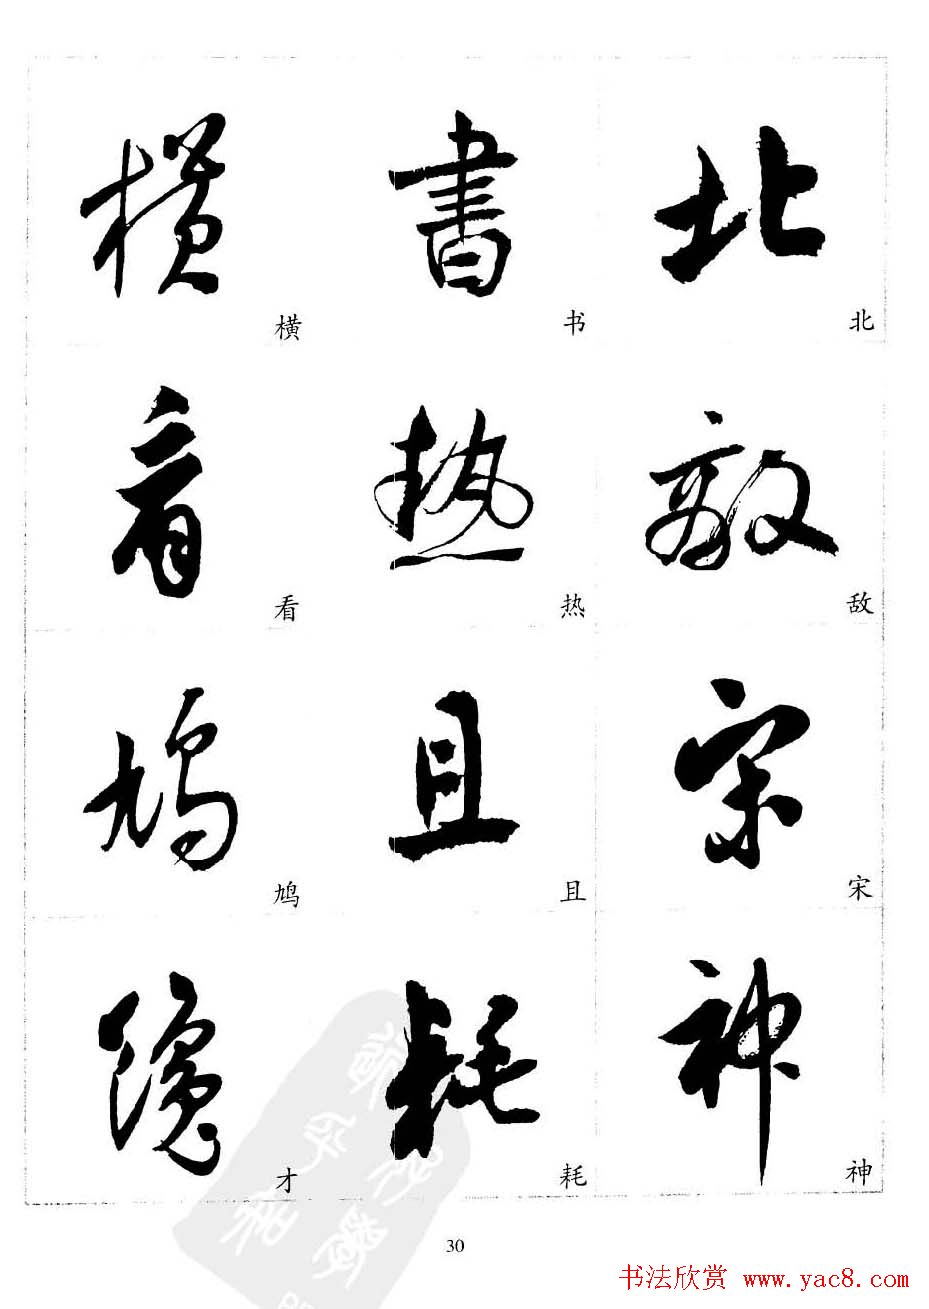 横 書 北
横 书 北
看 熱 敵
看 热 敌
鳩 且 宋
鸠 且 宋
隱 耗 神
才 耗 神
30
书法欣赏 www.yac8.com